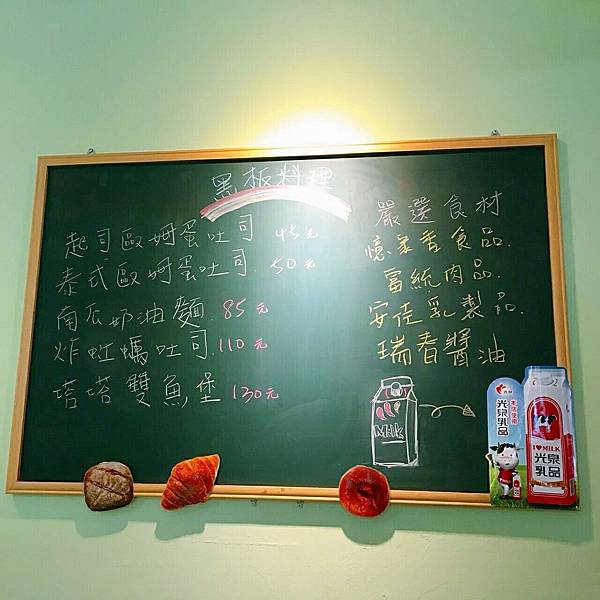 黑板料理
起司歐姆蛋吐司 45元
泰式歐姆蛋吐司 50元
南瓜奶油麵 85元
炸牡蠣吐司 110元
塔塔雙魚堡 130元
嚴選食材
憶家香食品.
富統肉品.
安佳乳製品.
瑞春醬油
Milk
光泉乳品
I ♥ MILK
光泉
乳品